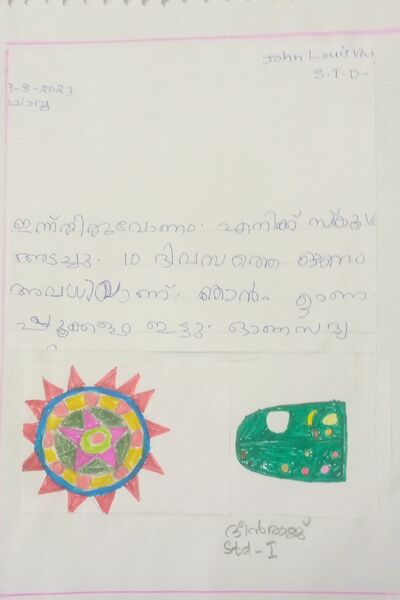 John Louis
S.T.D-
9-8-2023
ഇന്ന് തിരുവോണം. എനിക്ക് സ്കൂൾ
അടച്ചു. 10 ദിവസത്തെ ഓണം
അവധിയാണ്. ഞാൻ ഓണ
പ്പൂക്കളം ഇട്ടു. ഓണസദ്യ
Std-I